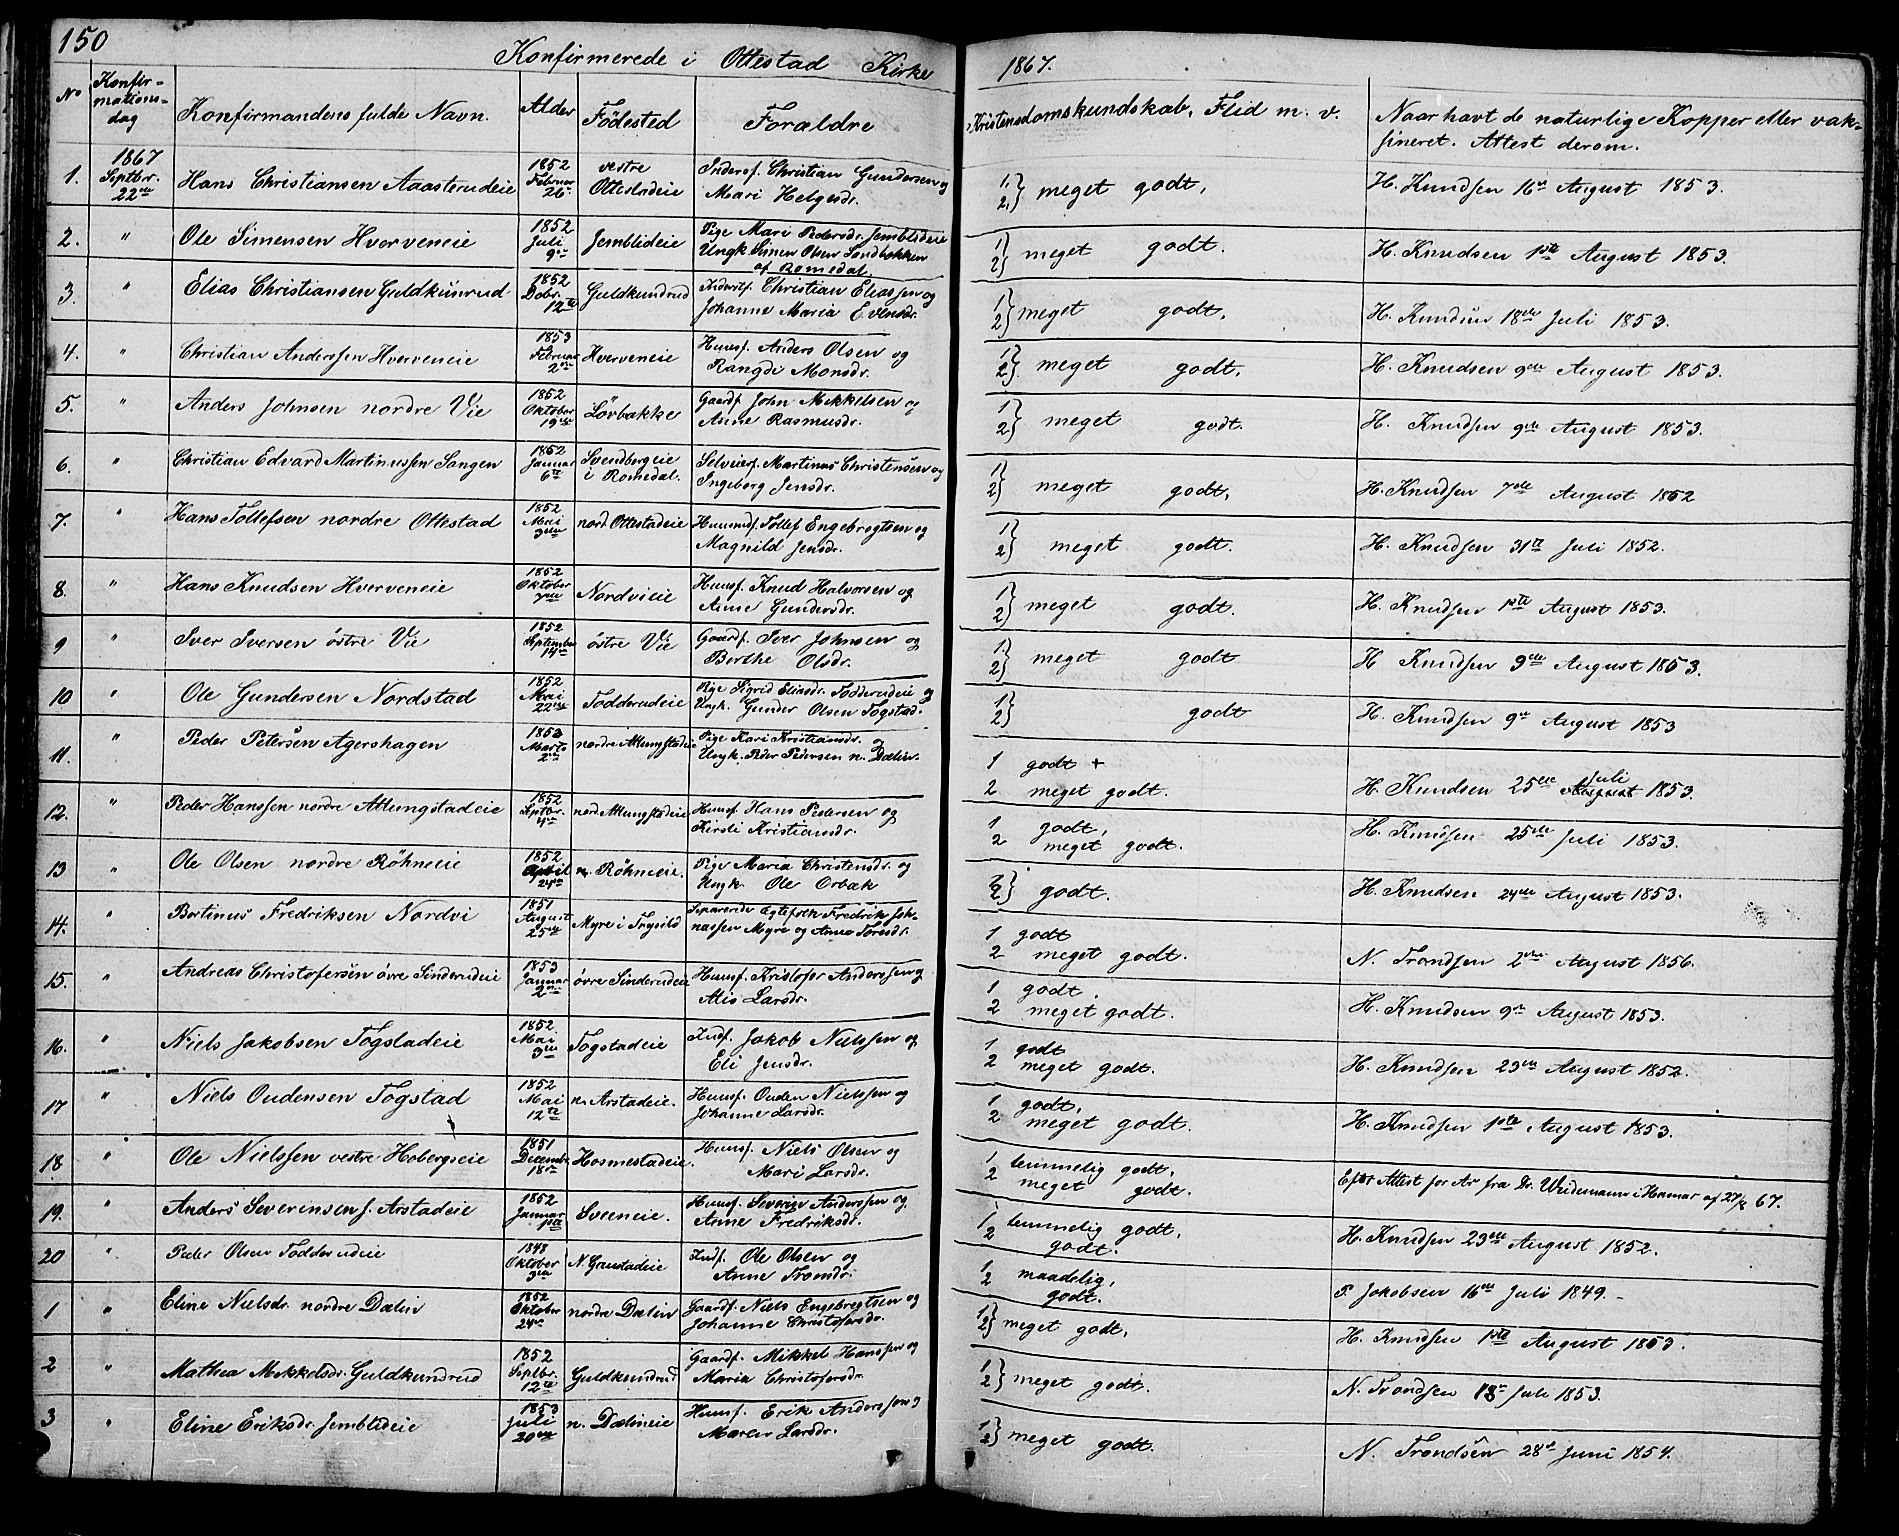 150
Konfirmerede i Ottestad Kirke 1867.
No
Konfir-
mations-
dag
Konfirmandens fulde Navn.
Alder
Födested
Forældre
Kristendomskundskab, Flid m. v.
Naar havt de naturlige Kopper eller vak-
sineret. Attest derom.
1. 1867 Septbr. 22de Hans Christiansen Aasterudeie 1852 Februar 26. vestre Ottestadeie Inderst. Christian Gundersen og
Mari Helgesdr. 1. 2. } meget godt. H. Knudsen 16de August 1853.
2. " Ole Simensen Hverveneie 1852 Juli 9de Jemblideie Pige Mari Pedersdr. Jemblideie
Ungk. Simen Olsen Sandbakken
af Romedal. 1 2 } meget godt. H. Knudsen 1ste August 1853.
3. " Elias Christiansen Guldkunrud 1852 Debr. 12te Guldkundrud Inderstf. Christian Eliassen og
Johanne Maria Evensdr. 1 2 } meget godt. H. Knudsen 18de Juli 1853.
4. " Christian Anderssen Hverveneie 1853 Februar 2den Hverveneie Huusf. Anders Olsen og
Rangdi Monsdr. 1 2 } meget godt. H. Knudsen 9de August 1853.
5. " Anders Johnsen nordre Vie 1852 Oktober 19de Lövbakke Gaardf. John Mikkelsen og
Anne Rasmusdr. 1 2 } meget godt. H. Knudsen 9de August 1853.
6. " Christian Edvard Martinussen Sangen 1852 Januar 6te Svendbergeie i Romedal. Selveierf. Martinus Christensen og
Ingeborg Jensdr. 1 2 } meget godt. H. Knudsen 7de August 1852
7. " Hans Tollefsen nordre Ottestad 1852 Mai 3die nord. Ottestadeie Huusmdf. Tollef Engebregtsen og
Magnild Jensdr. 1 2 } meget godt. H. Knudsen 31te Juli 1852.
8. " Hans Knudsen Hverveneie 1852 Oktober 7de Nordvieie Huusf. Knud Halvorsen og
Anne Gundersdr. 1 2 } meget godt. H. Knudsen 1ste August 1853.
9 " Iver Iversen östre Vie 1852 September 14de östre Vie Gaardf. Iver Johnsen og
Berthe Olsdr. 1 2 } meget godt H Knudsen 9de August 1853.
10 " Ole Gundersen Nordstad 1852 Mai 22de Todderudeie Pige Sigrid Eliasdr. Todderudeie og
Ungk. Gunder Olsen Togstad. 1 2 } godt H. Knudsen 9de August 1853
11. " Peder Petersen Agershagen 1852 Marts 2den nordre Atlungstadeie Pige Kari Kristiansdr. og
Ungk. Peder Pedersen n. Dælin. 1 godt +
2 meget godt. H. Knudsen 25de Juli August 1853.
12. " Peder Hanssen nordre Atlungstadeie 1852 Septbr. 4de nord. Atlungstadeie Huusf. Hans Pedersen og
Kirsti Kristiansdr. 1 godt,
2 meget godt. H. Knudsen 25de Juli 1853.
13 " Ole Olsen nordre Röhneeie 1852 April 24de n. Röhneeie. Pige Maria Christensdr. og
Ungk. Ole Orbæk 1 2 } godt. H. Knudsen 24de August 1853.
14. " Bertinus Fredriksen Nordvi 1851 August 25de Myre i Trysild Separerede Egtefolk Fredrik Joh-
nassen Myre og Anne Toresdr. 1 godt
2 meget godt. N. Trondsen 2den August 1856.
15. " Andreas Christofersen övre Sinderudeie 1853 Januar 2den övre Sinderudeie Huusf. Kristofer Anderssen og
Alis Larsdr. 1 godt.
2 meget godt. H. Knudsen 9de August 1853.
16. " Niels Jakobsen Togstadeie 1852. Mai 3die Togstadeie Indf. Jakob Nielssen og
Eli Jensdr. 1 godt
2 meget godt. H. Knudsen 23de August 1852.
17 " Niels Oudensen Togstad 1852 Mai 12te n. Arstadeie. Huusf. Ouden Nielssen og
Johanne Larsdr. 1 godt,
2 meget godt. H. Knudsen 1ste August 1853.
18 " Ole Nielssen vestre Hobergseie 1851 Decembr. 18de Hosmestadeie. Huusf. Niels Olsen og
Mari Larsdr. 1 temmelig godt,
2 meget godt. Efter Attest for Ar fra Dr. Weidemann i Hamar af 27/ 67.
19. " Anders Severinsen s. Arstadeie 1852 Januar 1ste Sveeneie. Huusf. Severin Anderssen og
Anne Fredriksdr. 1 temmelig godt,
2 godt. H. Knudsen 23de August 1852.
20 " Peder Olsen Todderudeie 1848 Oktober 3die N. Gaustadeie Indf. Ole Olsen og
Anne Tronsdr. 1 maadelig,
2 godt. P. Jakobsen 16de Juli 1849.
1 " Eline Nielsdr. nordre Dælin 1852 Oktober 24de nordre Dælin Gaardf. Niels Engebregtsen og
Johanne Christofersdr. 1 2 } meget godt. H. Knudsen 1ste August 1853.
2 " Mathea Mikkelsdr. Guldkundrud 1852 Septbr. 12te Guldkundrud Gaardf. Mikkel Hanssen og
Maria Christofersdr. 1 2 } meget godt. N. Trondsen 18de Juli 1853.
3 " Eline Eriksdr. Jemblideie 1853 Juli 20de n. Dælineie Huusf. Erik Anderssen og
Maren Larsdr. 1 2 } meget godt. N. Trondsen 28de Juni 1854.